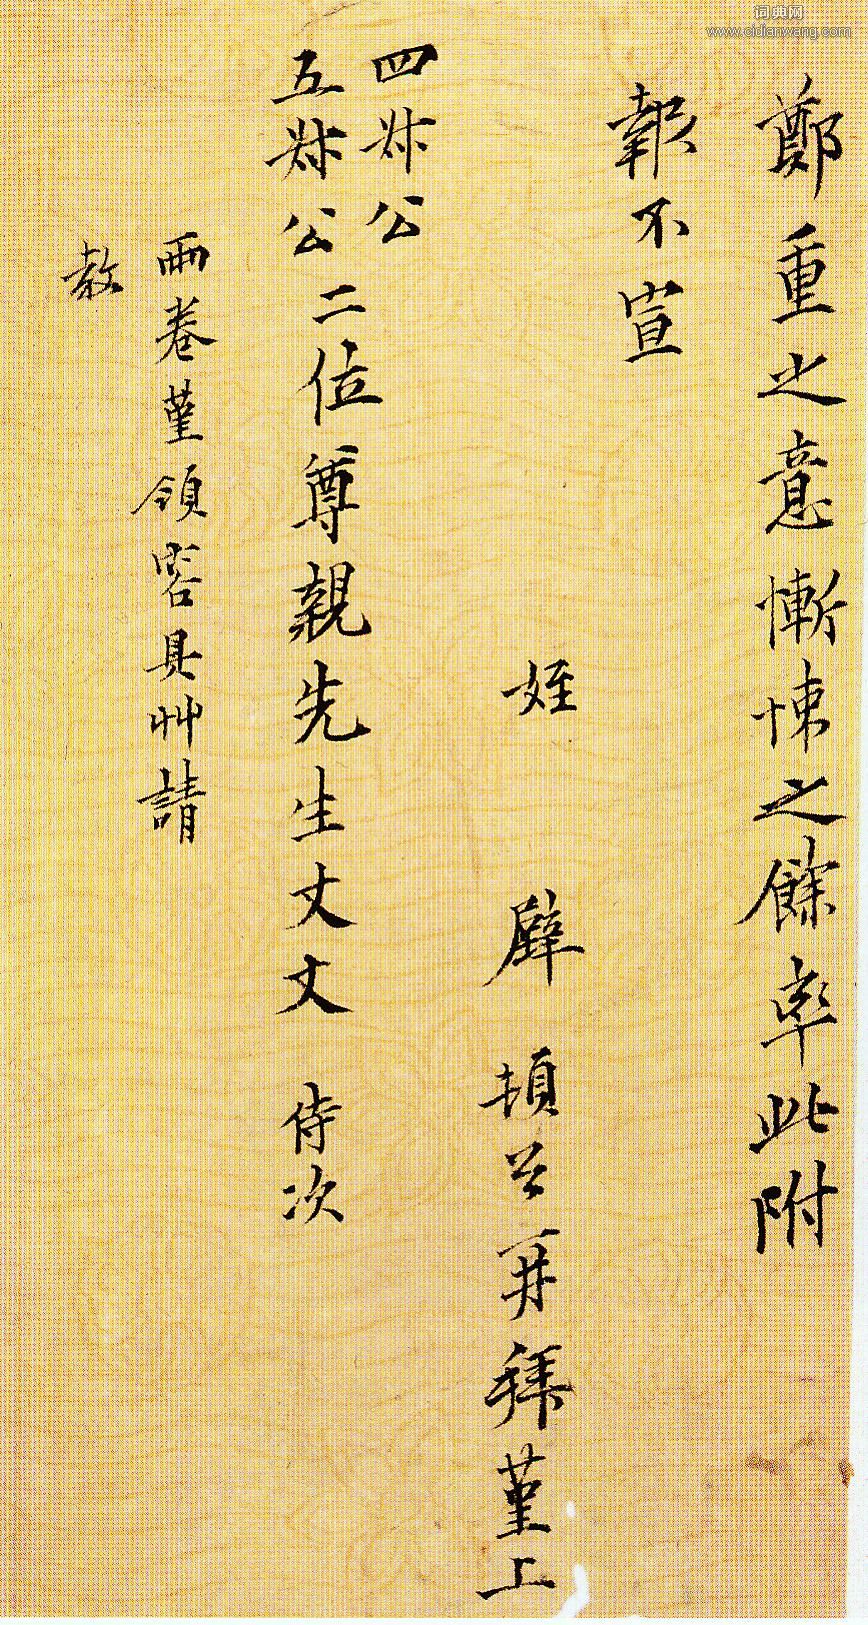 词典网
www.cidianwang.com
鄭重之意慚悚之餘率此附
報不宣
姪 頓首再拜堇上
四叔公
五叔公二位尊親先生丈丈 侍次
兩卷堇領容具艸請
教